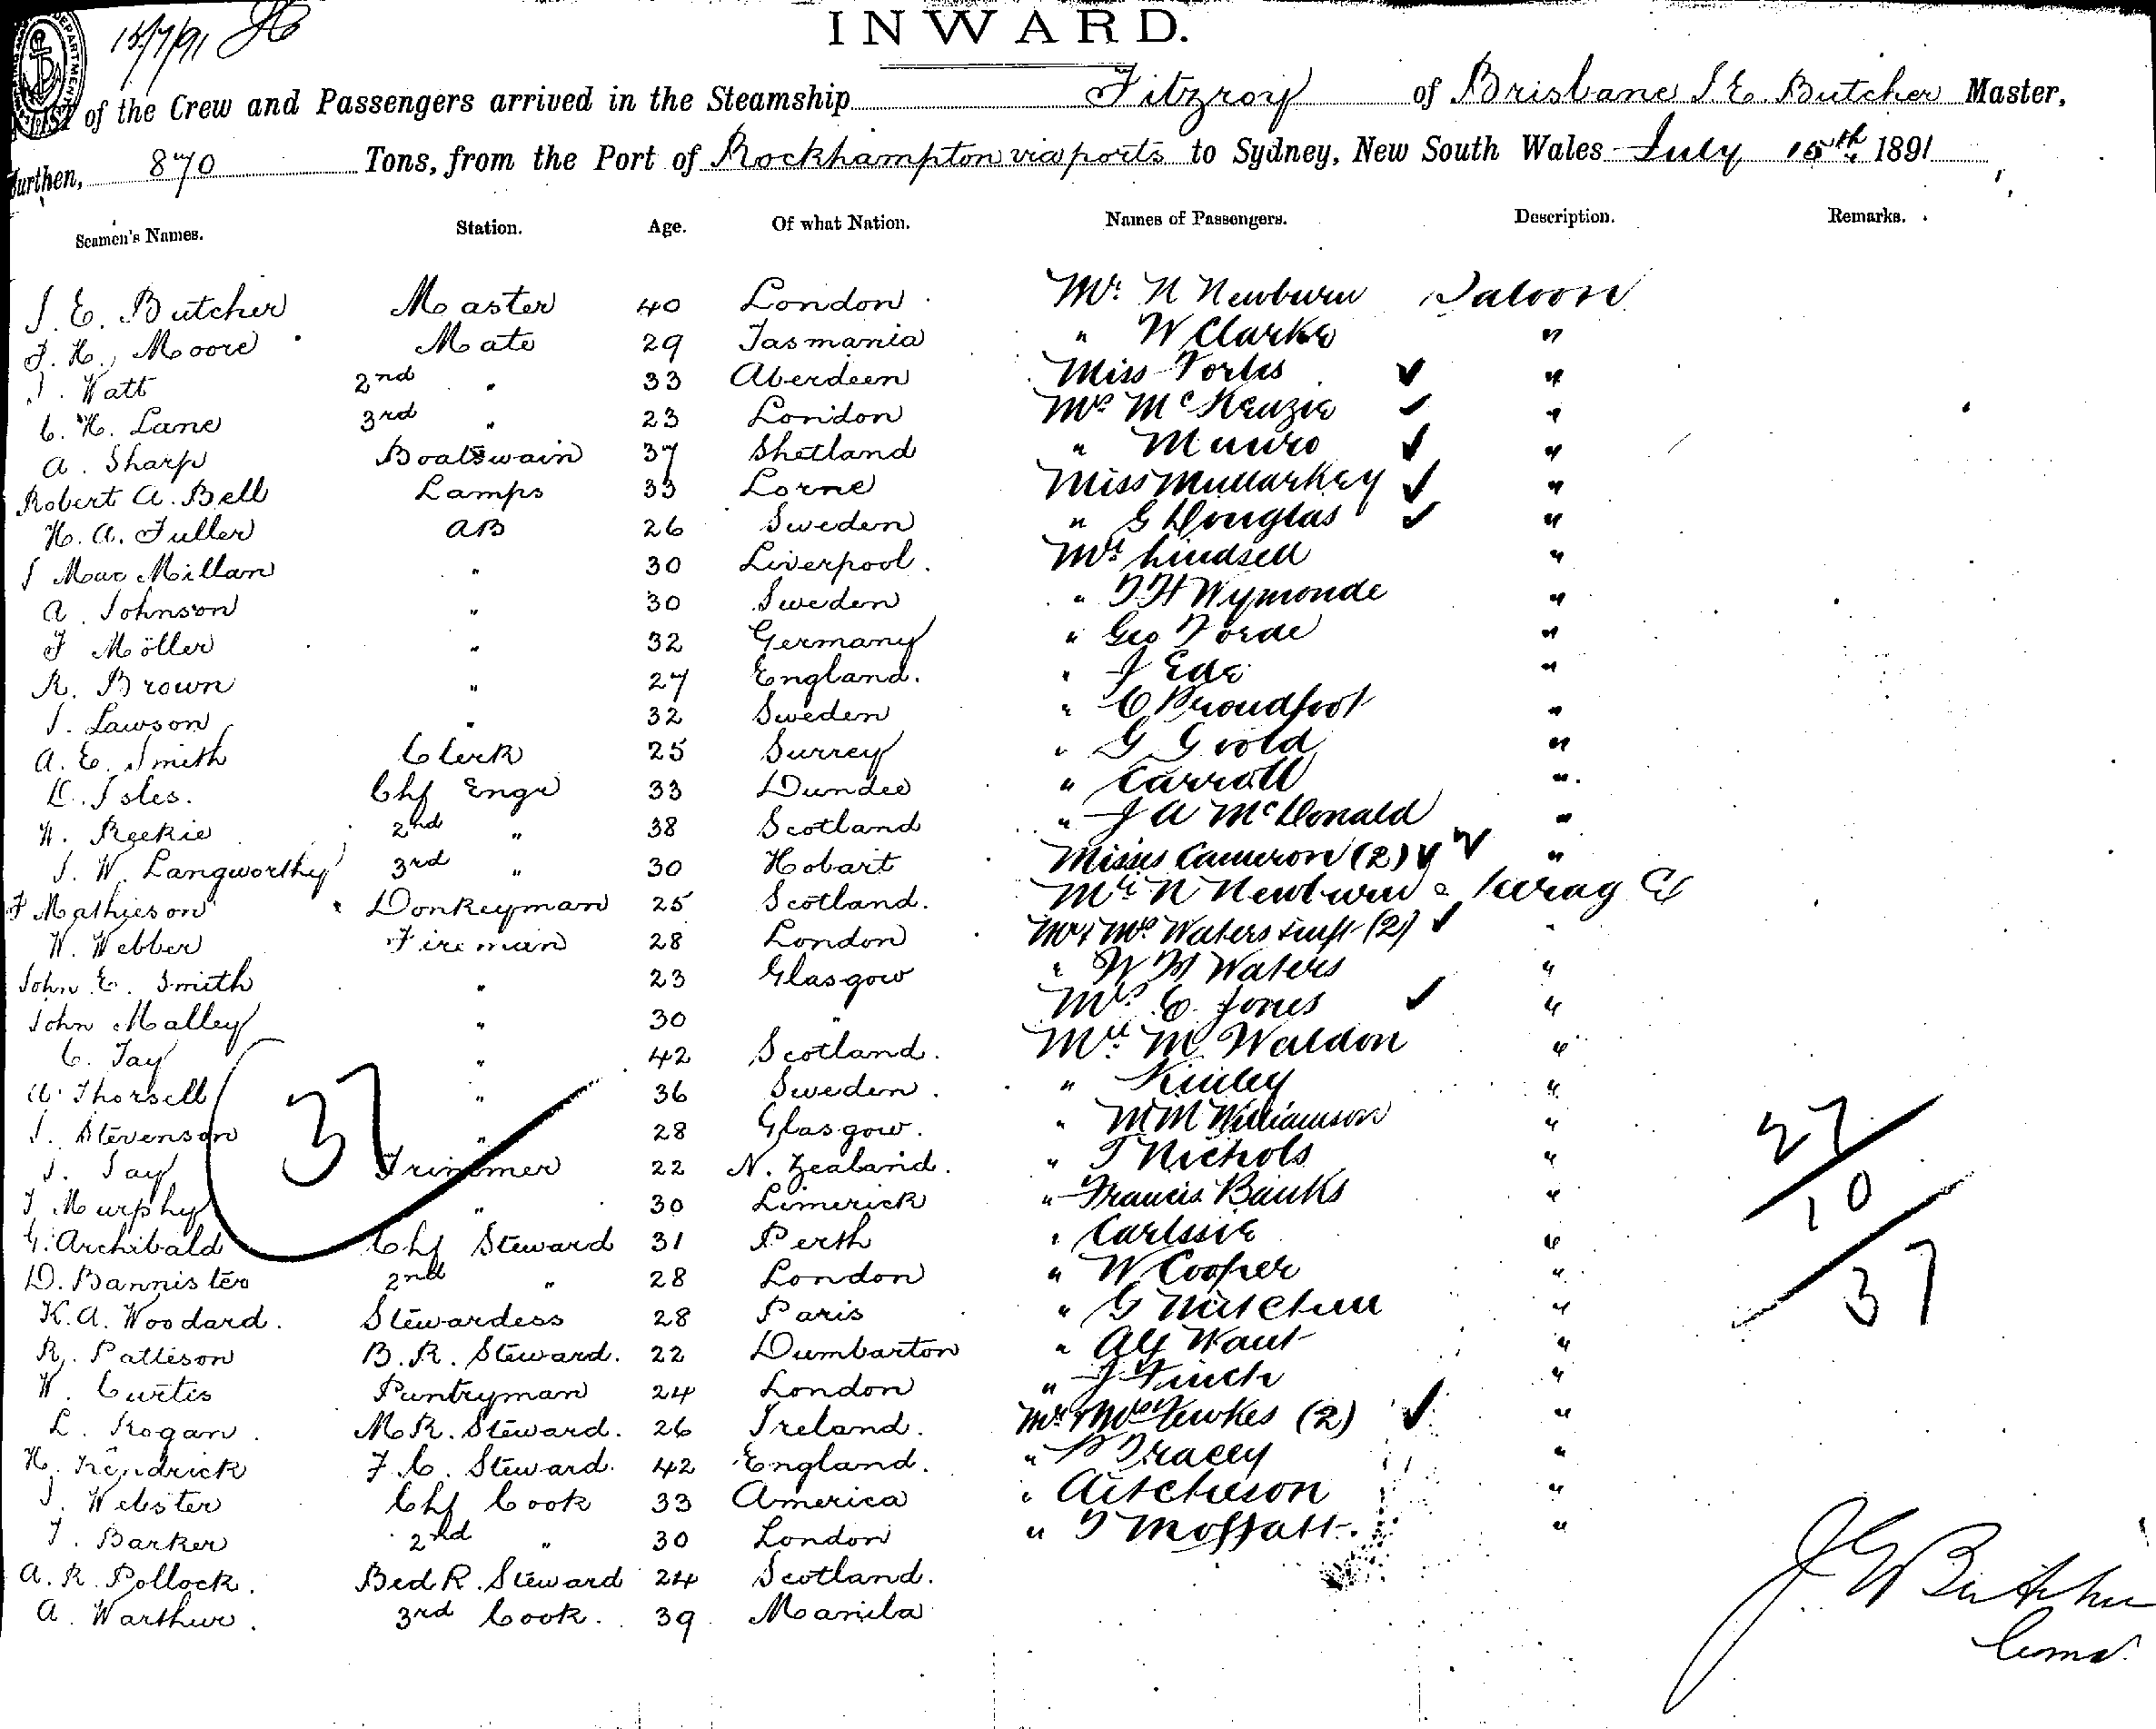 15/7/91
DEPARTMENT
INWARD.
LIST of the Crew and Passengers arrived in the Steamship Fitzroy of Brisbane J. E. Butcher Master,
Burthen, 870 Tons, from the Port of Rockhampton via ports to Sydney, New South Wales July 15th 1891
Seamen's Names. Station. Age. Of what Nation. Names of Passengers. Description. Remarks.
J. E. Butcher Master 40 London Mr. N Newburn Saloon
J. H. Moore Mate 29 Tasmania " W Clarke "
J. Watt 2nd " 33 Aberdeen Miss Forbes "
C. H. Lane 3rd " 23 London Mrs McKenzie "
A. Sharp Boatswain 37 Shetland " Munro "
Robert A. Bell Lamps 33 Lorne Miss Mullarkey "
H. A. Fuller AB 26 Sweden " G Douglas "
J Mac Millan " 30 Liverpool. Mr Lindsell "
A. Johnson " 30 Sweden " T H Wymonde "
F Möller " 32 Germany " Geo Forde "
R. Brown " 27 England. " J Ede "
J. Lawson " 32 Sweden " C Proudfoot "
A. E. Smith Clerk 25 Surrey " G Goold "
D. Isles. Chf Engr 33 Dundee " Carroll "
W. Reekie 2nd " 38 Scotland " J A McDonald "
J. W. Langworthy 3rd " 30 Hobart Misses Cameron (2) "
F Mathieson Donkeyman 25 Scotland. Mr N Newburn
W. Webber Fireman 28 London Mr & Mrs Waters (2) "
John E. Smith " 23 Glasgow " W H Waters "
John Malley " 30 " Mrs C. Jones "
C. Tay " 42 Scotland. Mr M Waldon "
A. Thorsell " 36 Sweden. " Kinley "
J. Stevenson " 28 Glasgow. " W M Williamson "
J. Tay Trimmer 22 N. Zealand. " T Nichols "
T Murphy " 30 Limerick " Francis Banks "
G. Archibald Chf Steward 31 Perth " "
D. Bannister 2nd " 28 London " W Cooper "
K. A. Woodard. Stewardess 28 Paris " G Mitchell "
R. Pattison B. R. Steward. 22 Dumbarton " Alf Want "
W. Curtis Pantryman 24 London " J Finch "
L. Hogan. M. R. Steward. 26 Ireland. Mr & Mrs Fewkes (2) "
H. Kendrick F. C. Steward. 42 England. " P Tracey "
J. Webster Chf Cook 33 America " Aitcheson "
T. Barker 2nd " 30 London " T Moffatt. "
A. R. Pollock. Bed R. Steward 24 Scotland.
A. Warthur. 3rd Cook. 39 Manila
37
27
10
37
J E Butcher
Comd.